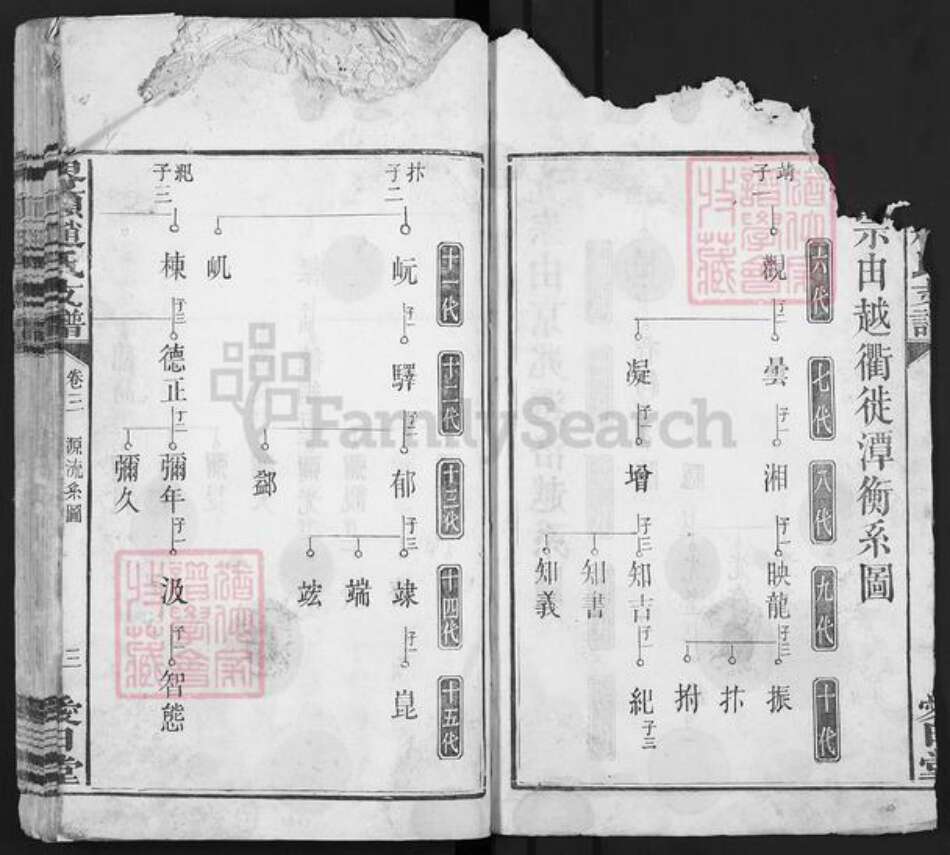 宗由越衢徙潭衡系圖
六代
七代
八代
九代
十代
靖子一
觀 子二
曇 子一
湘 子一
映龍 子三
振
抃
拊
凝 子一
增 子三
知吉 子一
紀 子三
知書
知義
十一代
十二代
十三代
十四代
十五代
抃子二
岏 子一
驛 子二
郁 子三
竦 子一
崑
端
竑
鄧
㠶
紀子三
棟 子三
德正 子二
彌年 子一
汲 子一
智態
彌久
趙氏支譜
卷三
源流系圖
三
愛日堂
FamilySearch